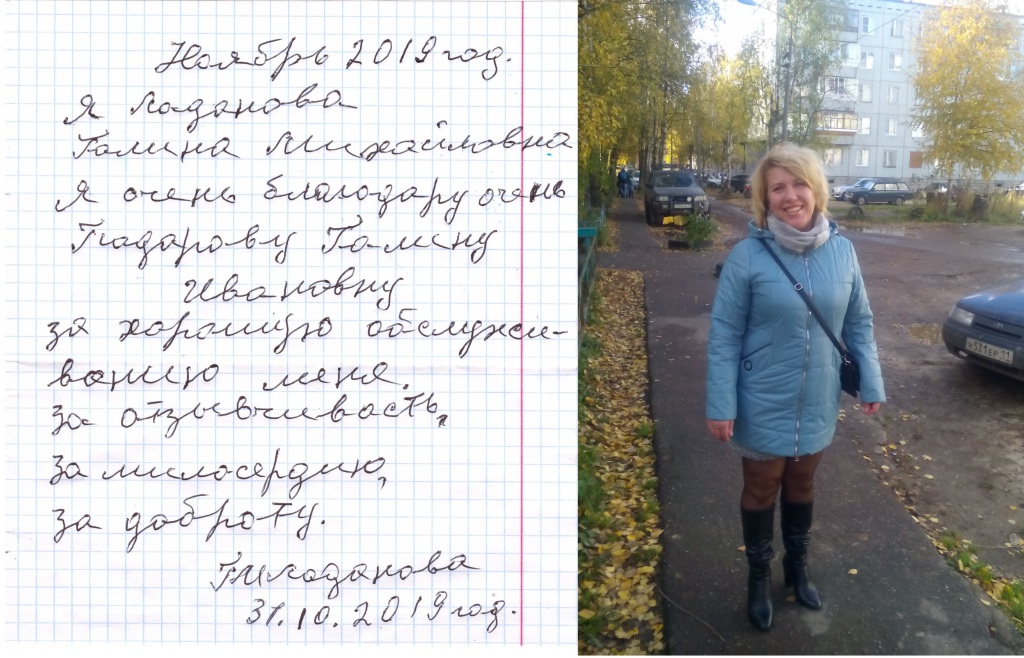 Ноябрь 2019 год.
я Каданова
Галина Михайловна
я очень благодару очень
Гадарову Галину
Ивановну
за хорошую обслужи-
ванию меня.
за отзывчивость,
за милосердию,
за доброту.
31.10.2019 год.
Н531ЕР 11